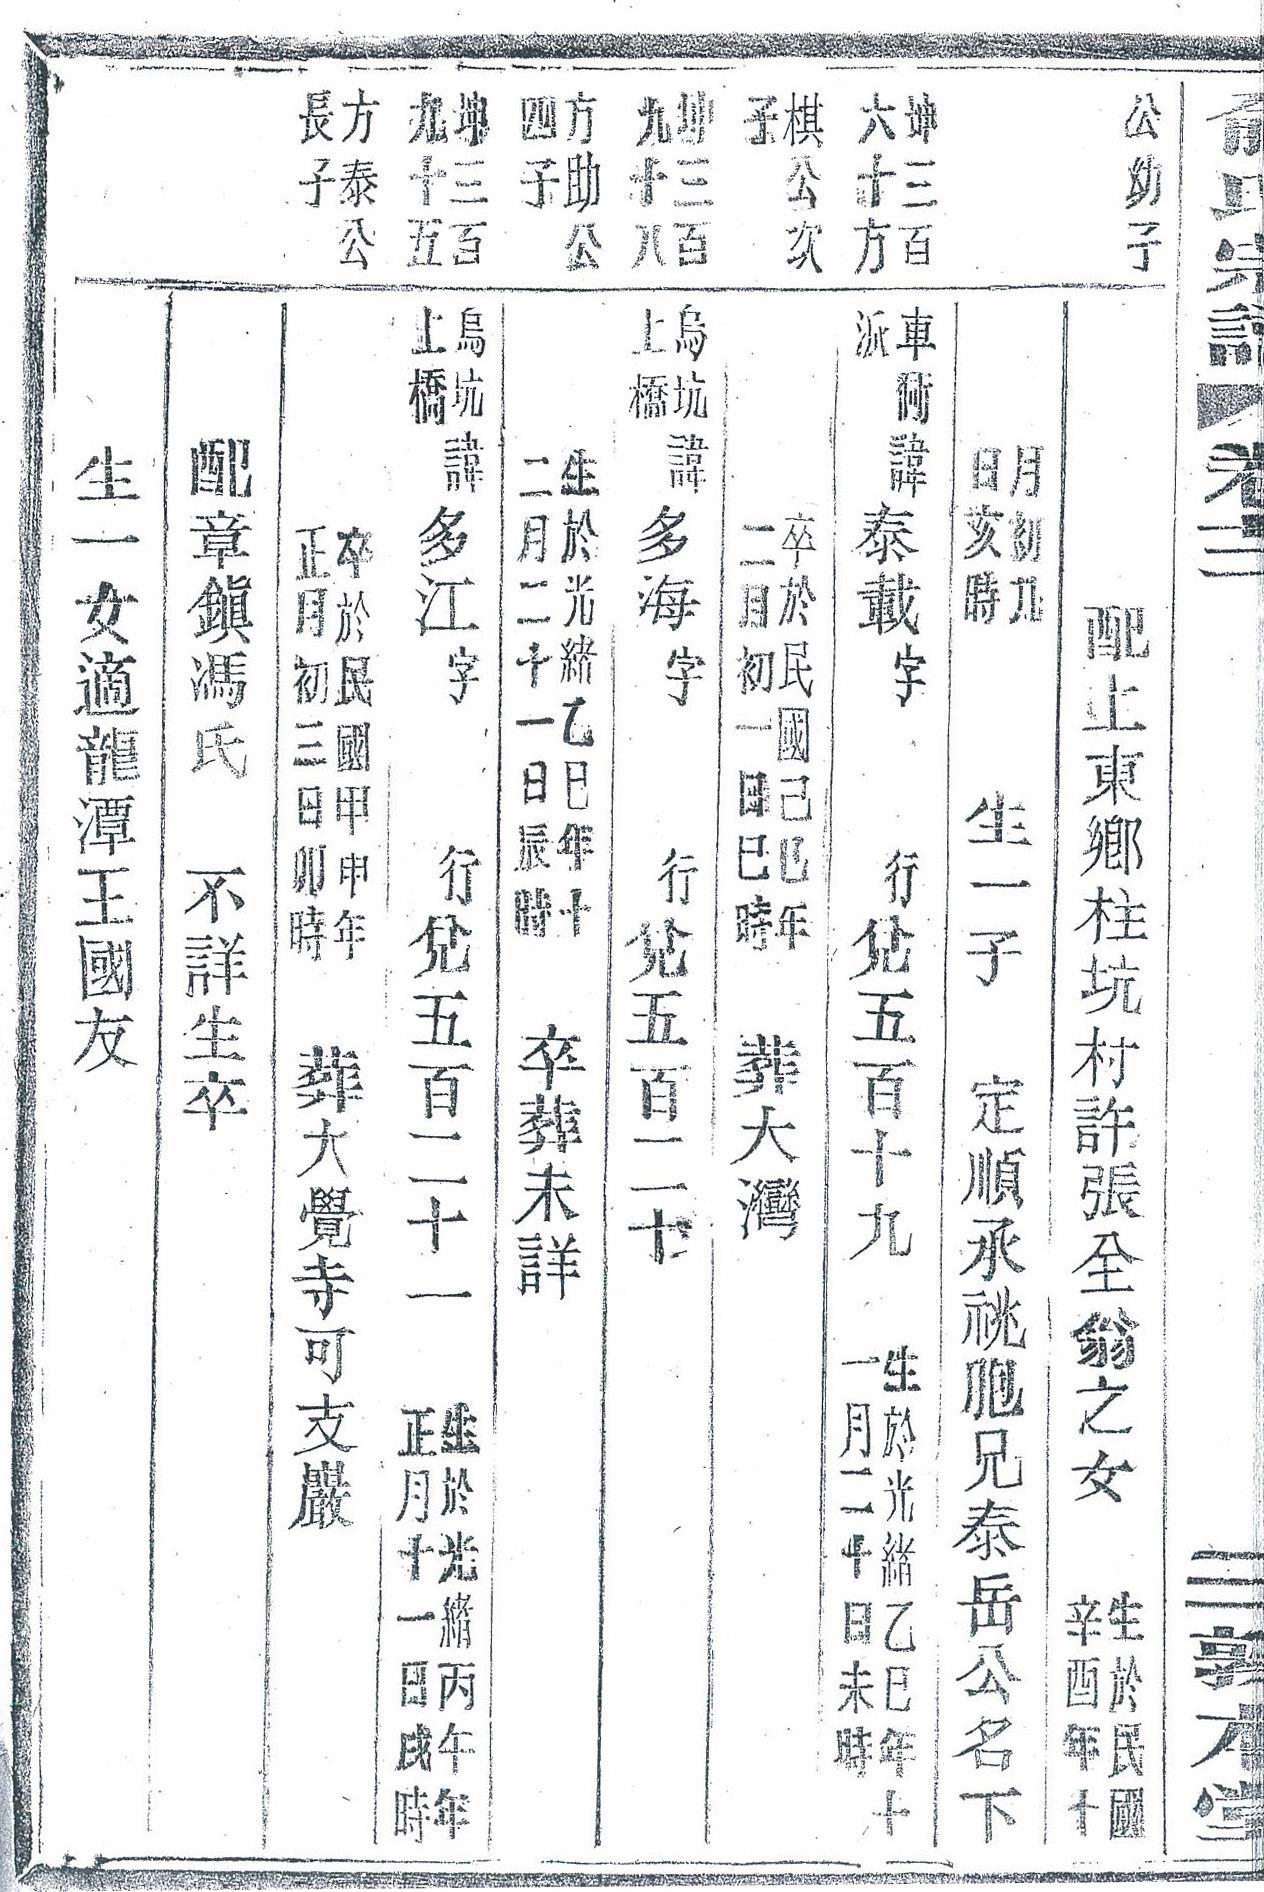 俞氏宗譜 卷二 三 敦本堂
公幼子
配上東鄉柱坑村許張全翁之女 生於民國辛酉年十
月初九日亥時 生一子 定順承祧胞兄泰岳公名下
坤三百六十方
車衕派諱泰載字 行兌五百十九 生於光緒乙巳年十一月二十日未時
棋公次子
卒於民國己巳年二月初一日巳時 葬大灣
坤三百九十八
烏坑上橋諱多海字 行兌五百二十
方助公四子
生於光緒乙巳年十二月二十一日辰時 卒葬未詳
坤三百九十五
烏坑上橋諱多江字 行兌五百二十一 生於光緒丙午年正月十一日戌時
方泰公長子
卒於民國甲申年正月初三日卯時 葬大覺寺可支巖
配章鎮馮氏 不詳生卒
生一女適龍潭王國友